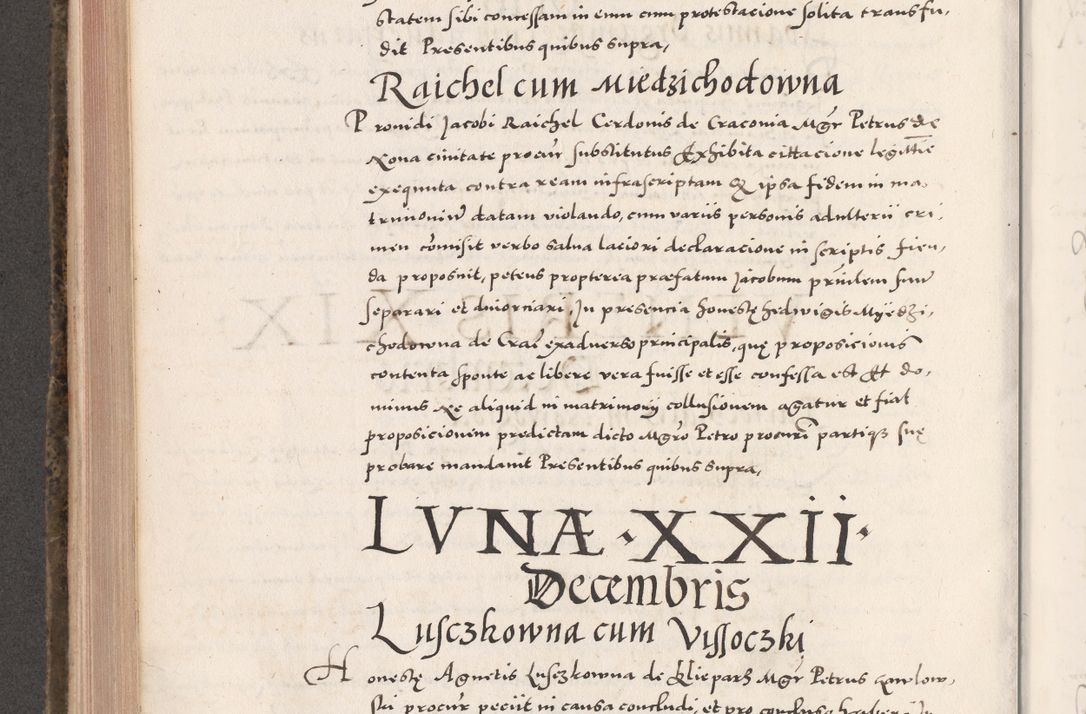 statem sibi concessam in eum cum protestacione solita transfu,
dit Presentibus quibus supra,
Raichel cum Miedzichodowna
Prouidi Jacobi Raichel Cerdonis de Cracouia Mgr Petrus de
Noua ciuitate procur substitutus Exhibita cittacione legittie
exequuta contra ream infrascriptam Q ipsa fidem in ma,
trimoniu datam violando, cum variis personis adulterii cri,
men comisit verbo salua laciori declaracione in scriptis fien,
da proposuit, petens propterea præfatum Jacobum prnilem suu
separari et diuorciari, In presencia honestę Hedwigis Myedzi,
chodowna de Crac exaduerso principalis, quę proposicionis
contenta sponte ac libere vera fuisse et esse confessa est Et do,
minus Ne aliquid in matrimonij collusionem agatur et fiat
proposicionem predictam dicto Mgro Petro procuri partiq3 suę
probare mandauit Presentibus quibus supra,
LVNÆ · XXII ·
Decembris
Lusczkowna cum Vissoczki
Honestę Agnetis Lusczkowna de Klieparz Mgr Petrus Gawlow,
ski procur peciit in causa concludi, et pro conclusa haberi In